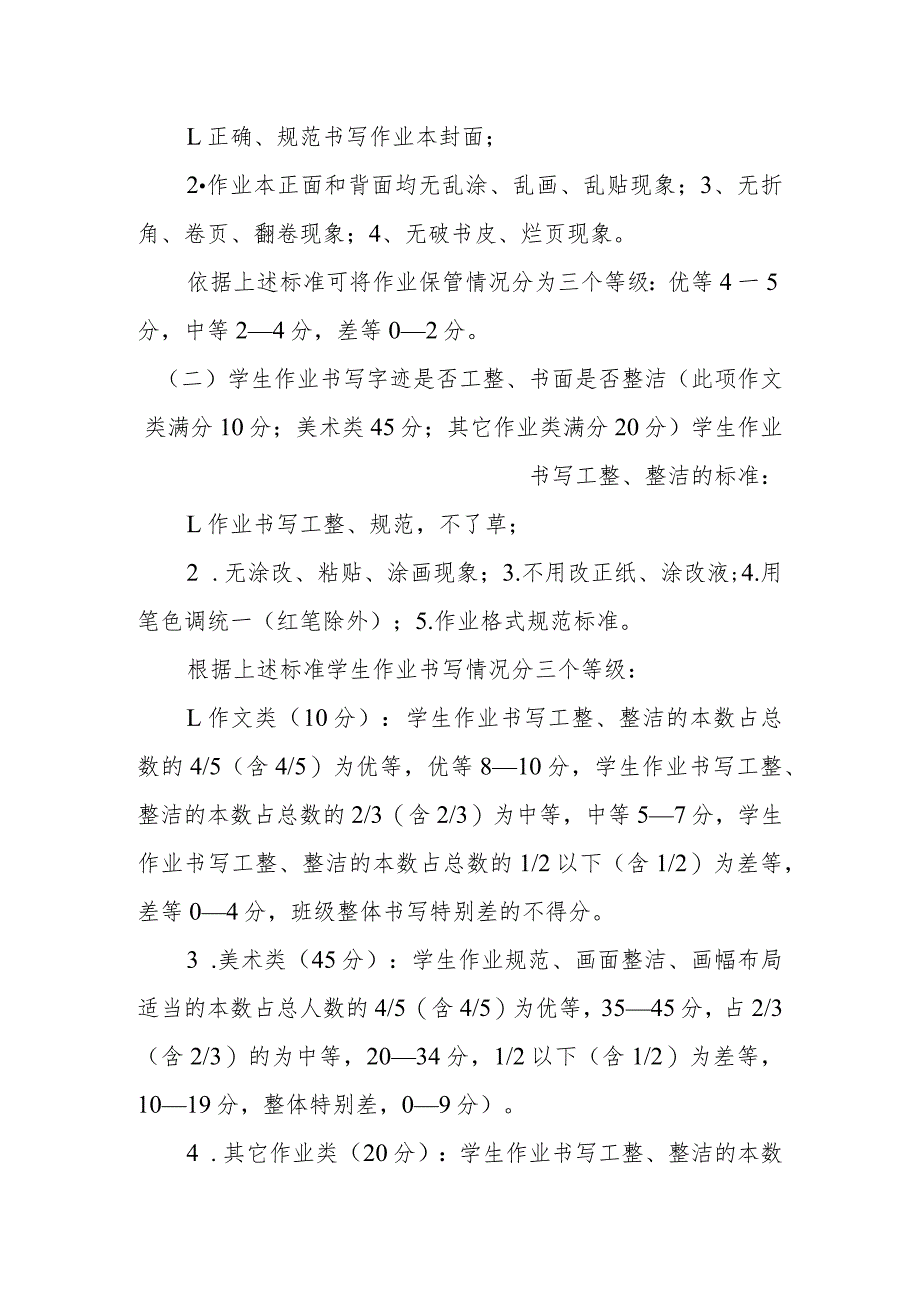 L正确、规范书写作业本封面；
2•作业本正面和背面均无乱涂、乱画、乱贴现象；3、无折
角、卷页、翻卷现象；4、无破书皮、烂页现象。
依据上述标准可将作业保管情况分为三个等级：优等4一5
分，中等2—4分，差等0—2分。
（二）学生作业书写字迹是否工整、书面是否整洁（此项作文
类满分10分；美术类45分；其它作业类满分20分）学生作业
书写工整、整洁的标准：
L作业书写工整、规范，不了草；
2 .无涂改、粘贴、涂画现象；3.不用改正纸、涂改液；4.用
笔色调统一（红笔除外）；5.作业格式规范标准。
根据上述标准学生作业书写情况分三个等级：
L作文类（10分）：学生作业书写工整、整洁的本数占总
数的4/5（含4/5）为优等，优等8—10分，学生作业书写工整、
整洁的本数占总数的2/3（含2/3）为中等，中等5—7分，学生
作业书写工整、整洁的本数占总数的1/2以下（含1/2）为差等，
差等0—4分，班级整体书写特别差的不得分。
3 .美术类（45分）：学生作业规范、画面整洁、画幅布局
适当的本数占总人数的4/5（含4/5）为优等，35—45分，占2/3
（含2/3）的为中等，20—34分，1/2以下（含1/2）为差等，
10—19分，整体特别差，0—9分）。
4 .其它作业类（20分）：学生作业书写工整、整洁的本数